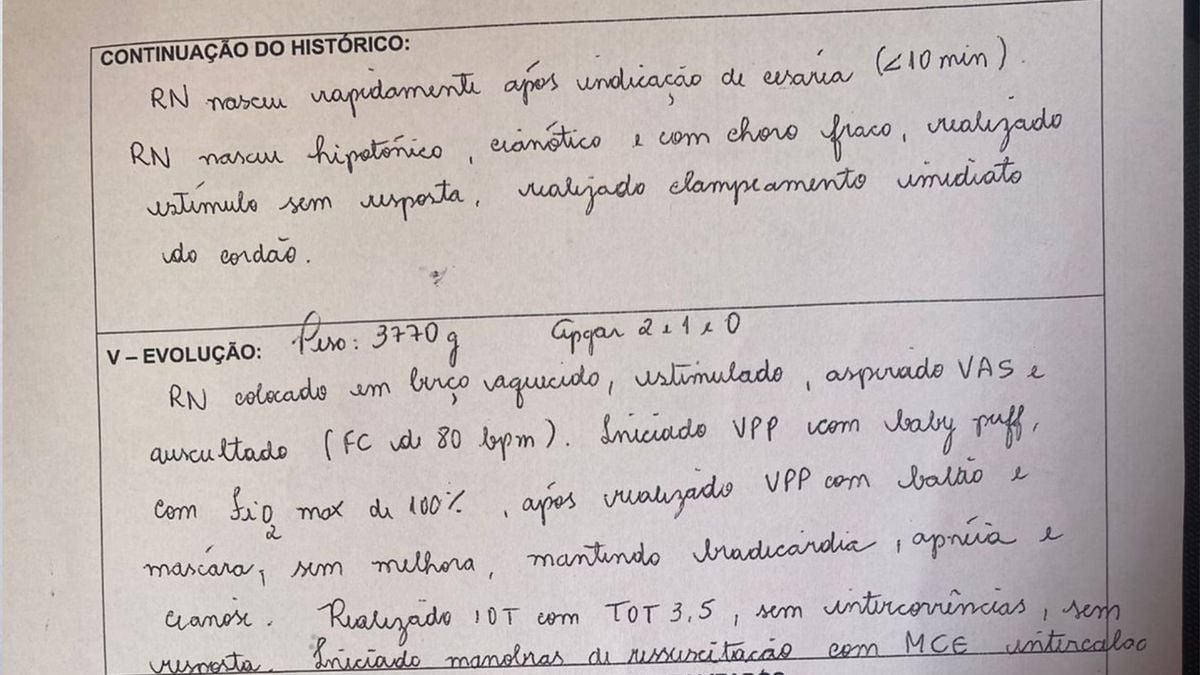 CONTINUAÇÃO DO HISTÓRICO:
RN nasceu rapidamente após indicação de cesária (<10 min).
RN nasceu hipotônico, cianótico e com choro fraco, realizado
estímulo sem resposta, realizado clampeamento imediato
do cordão.
V – EVOLUÇÃO: Peso: 3770 g Apgar 2 e 1 e 0
RN colocado em berço aquecido, estimulado, aspirado VAS e
auscultado (FC de 80 bpm). Iniciado VPP com baby puff,
com fiO2 max de 100%, após realizado VPP com balão e
máscara, sem melhora, mantendo bradicardia, apnéia e
cianose. Realizado IOT com TOT 3,5, sem intercorrências, sem
resposta. Iniciado manobras de ressuscitação com MCE